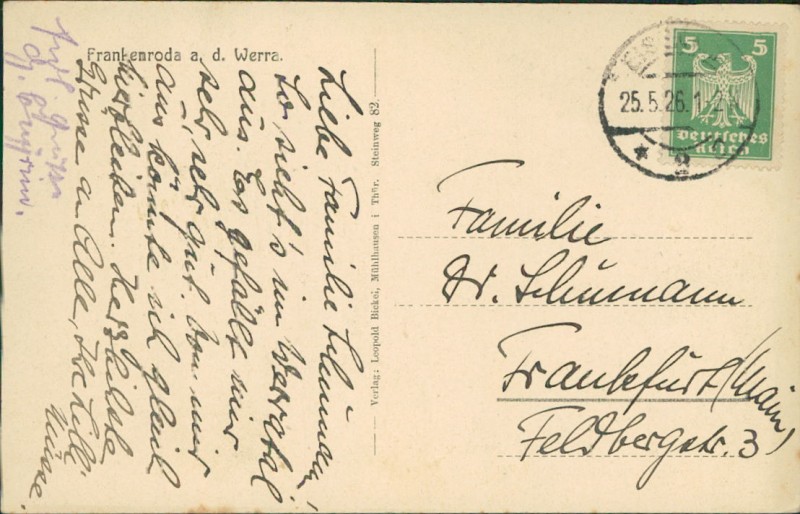 Frankenroda a. d. Werra.
Liebe Familie Schumann!
So sieht's im Werratal
aus. Es gefällt mir
sehr, sehr gut. Von mir
aus könnte ich gleich
hierbleiben. Herzlichste
Grüsse an Alle, Ihre Lilli
Verlag: Leopold Bickel, Mühlhausen i Thür. Steinweg 82.
5 5
Deutsches
Reich
25.5.26.1-2
* a
Familie
Dr. Schumann
Frankfurt (Main)
Feldbergstr. 3